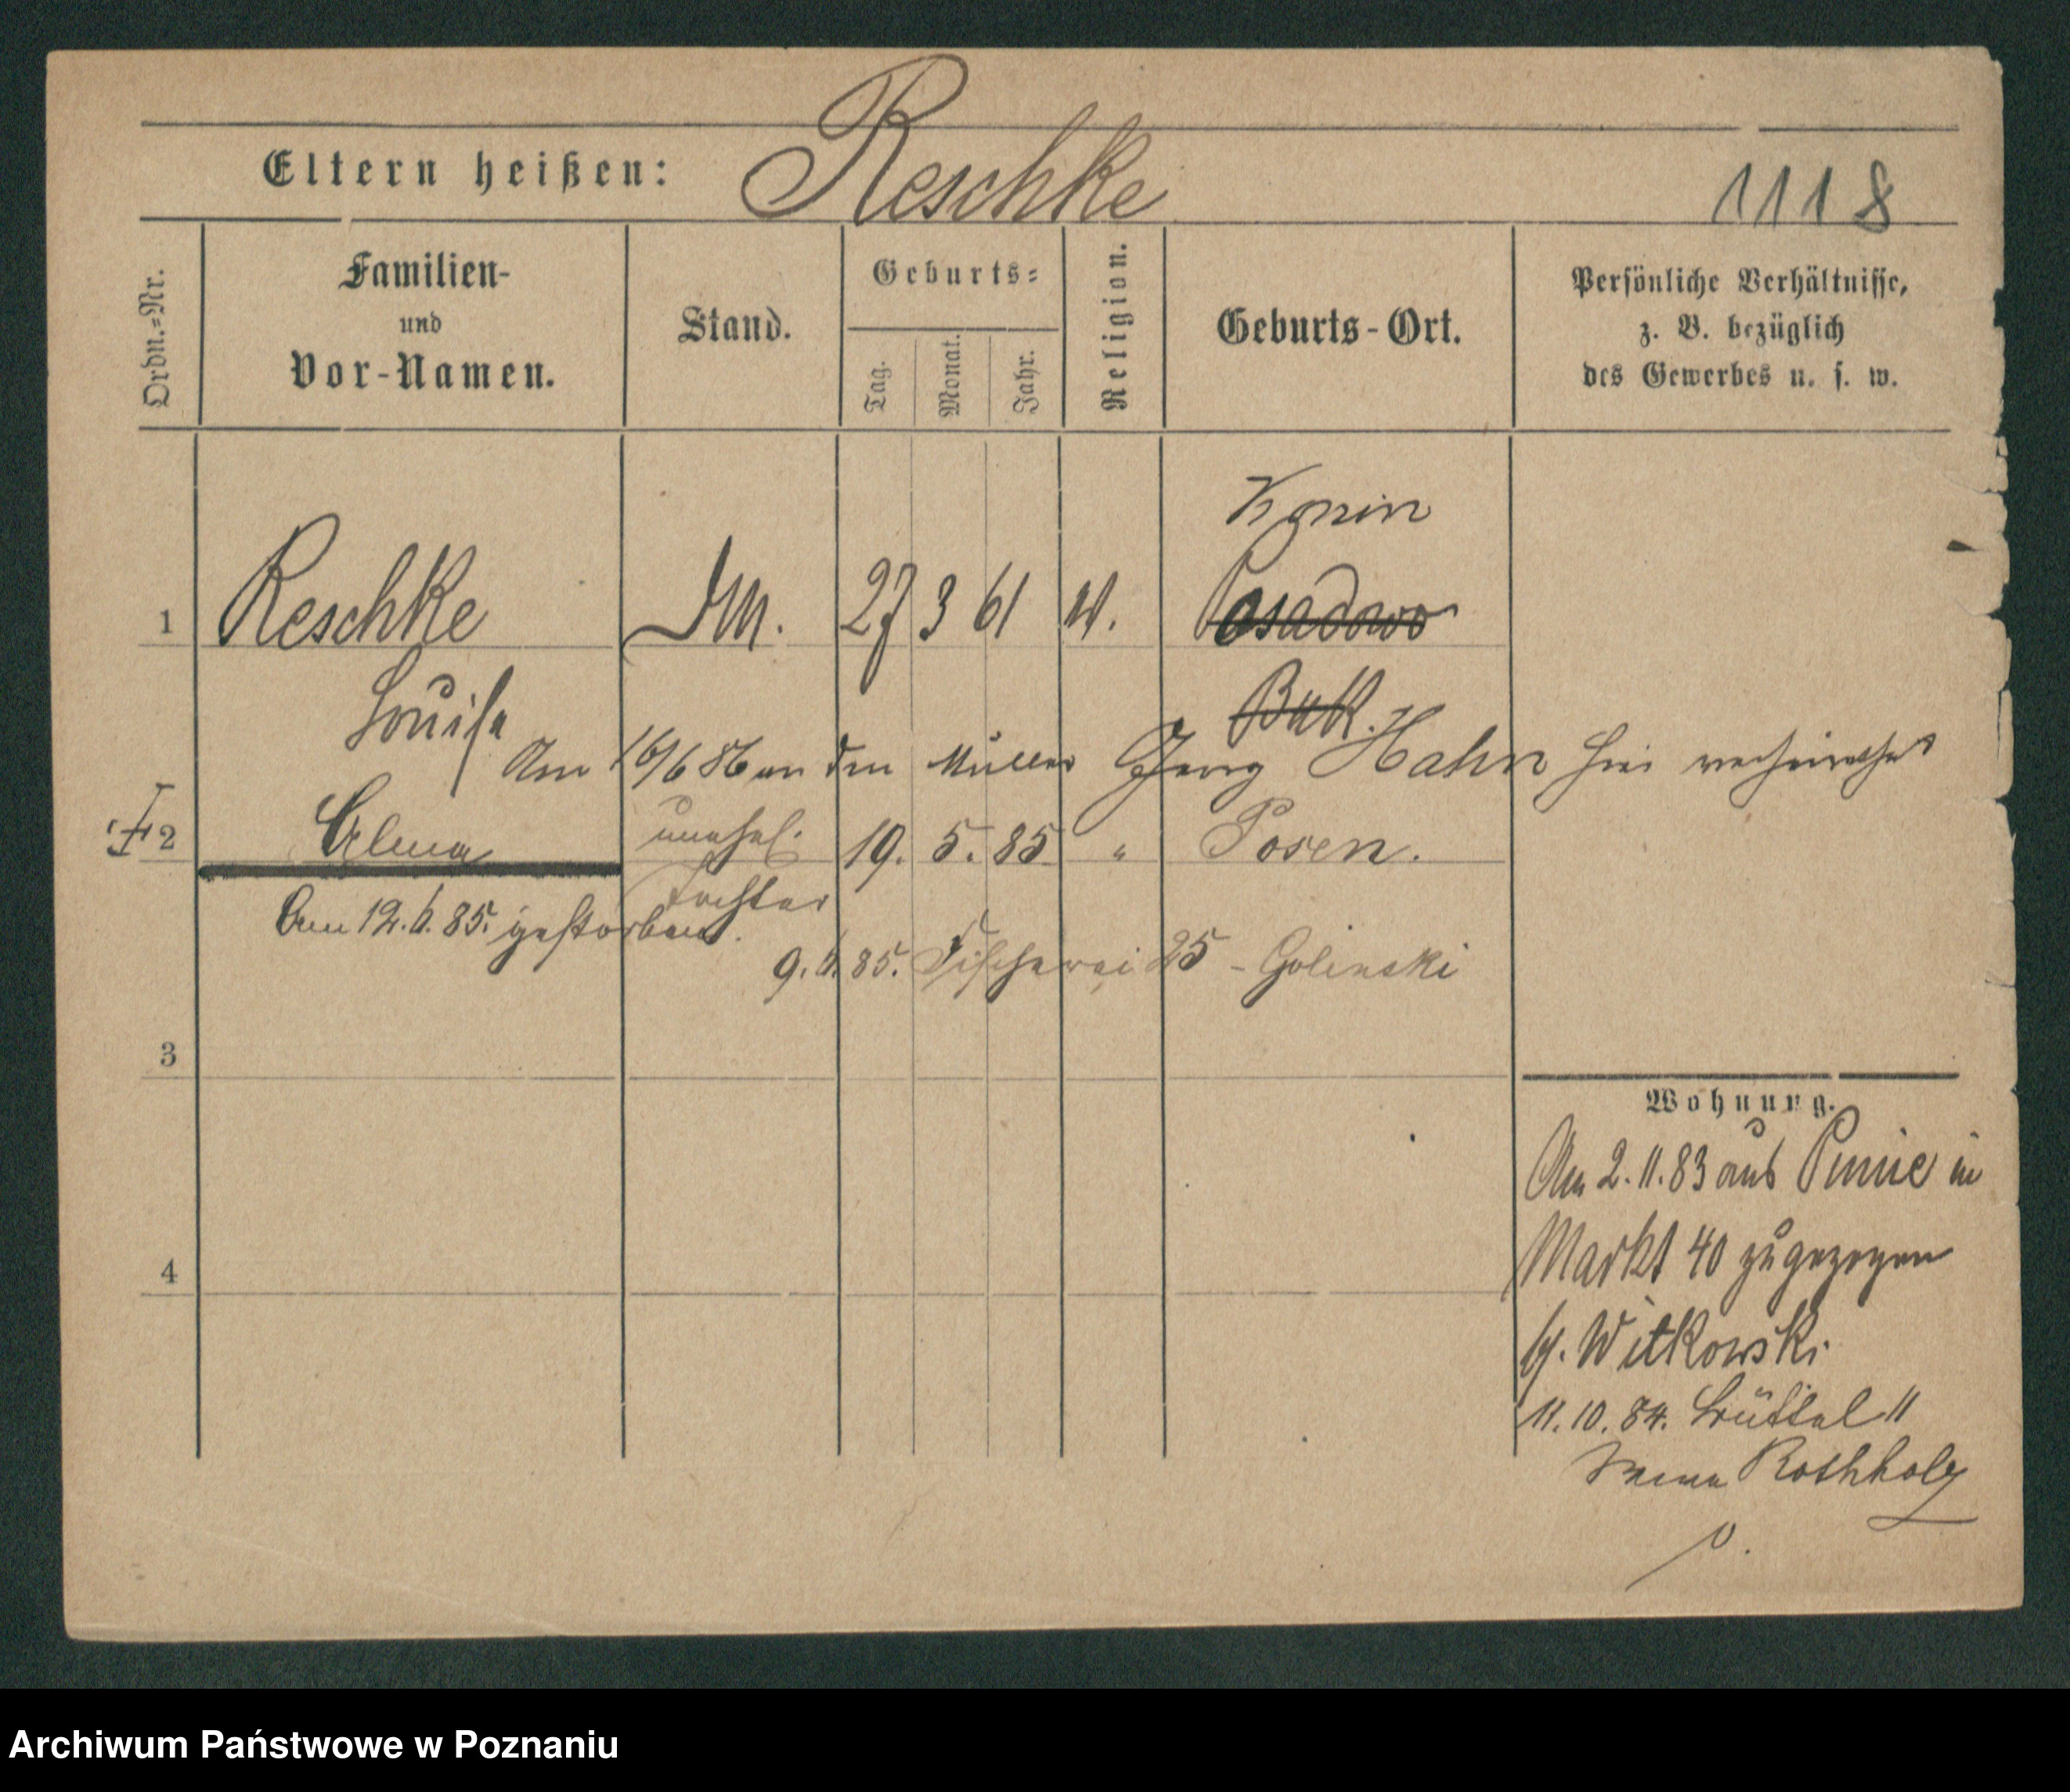 Eltern heißen: Reschke 1118
Ordn.-Nr.
Familien-
und
Vor-Namen.
Stand.
Geburts-
Tag.
Monat.
Jahr.
Religion.
Geburts-Ort.
Persönliche Verhältnisse,
z. B. bezüglich
des Gewerbes u. s. w.
Konin
1 Reschke DM. 27 3 61 ev. Posadowo
Louise Buk.
Am 16/6 86 an den Müller Georg Hahn hier verheirathet
2 Alma unehel. 19. 5. 85 " Posen.
Tochter
Am 12.6.85. gestorben.
9.6.85. Fischerei 25 - Golinski
3
Wohnung.
Am 2.11.83 aus Pinne in
Markt 40 zugezogen
b/. Witkowski
4
11.10.84. Büttel 11
Rothholz
Archiwum Państwowe w Poznaniu